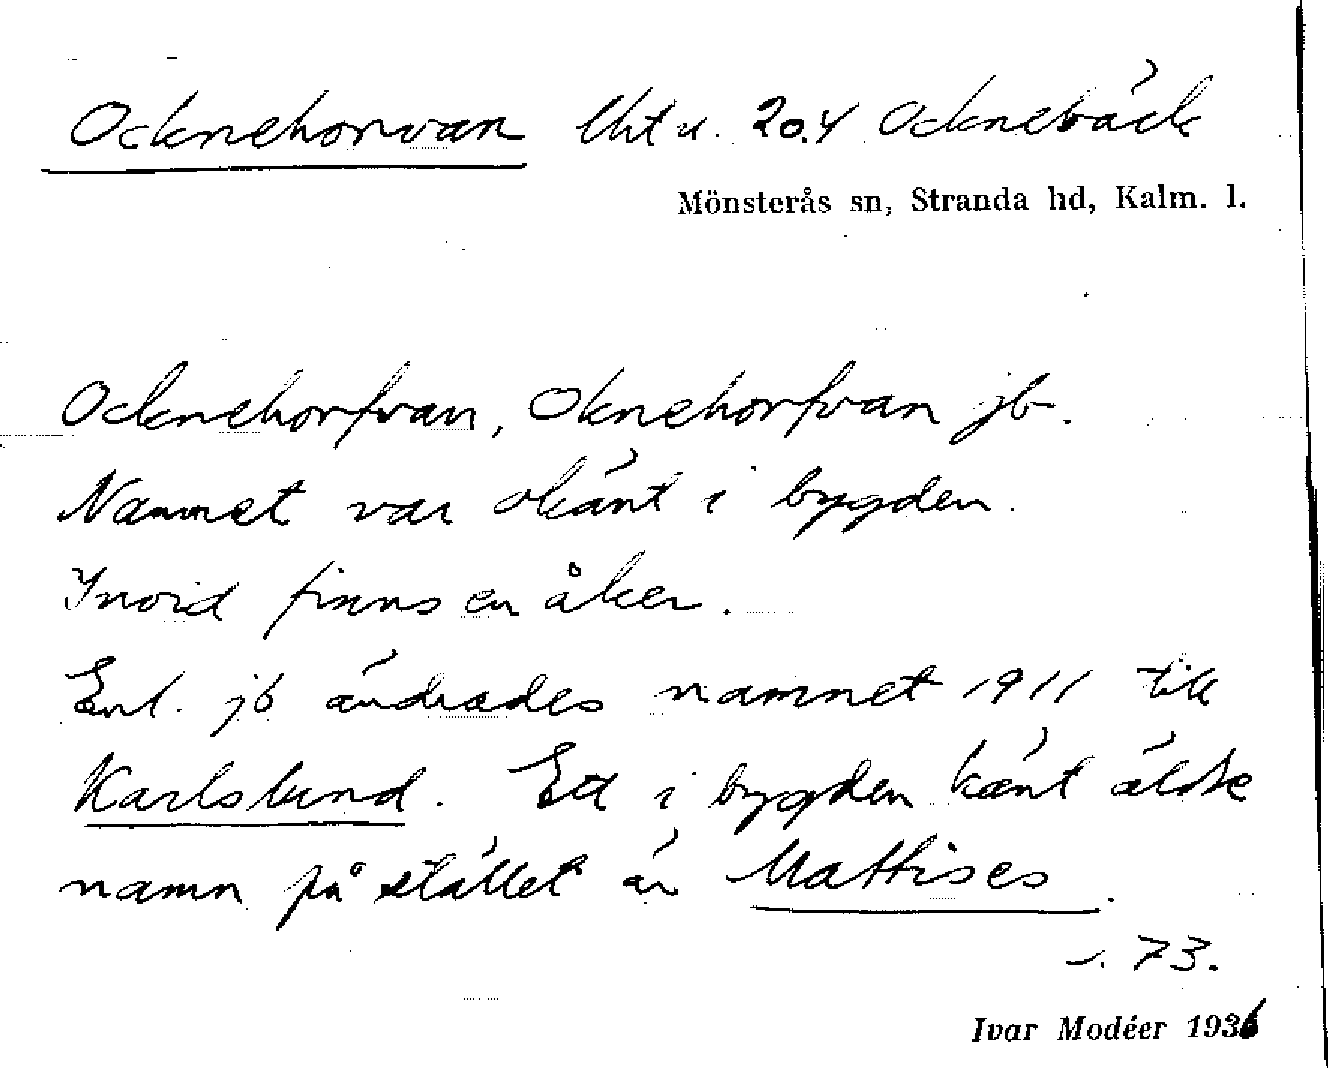 Ocknehorvan lht u. 20.4 Ocknebäck
Mönsterås sn, Stranda hd, Kalm. l.
Ocknehorfvan, Oknehorfvan jb.
Namnet var okänt i bygden.
Invid finns en åker.
Enl. jb ändrades namnet 1911 till
Karlslund. Ett i bygden känt äldre
namn på stället är Mattises.
s. 73.
Ivar Modéer 1936